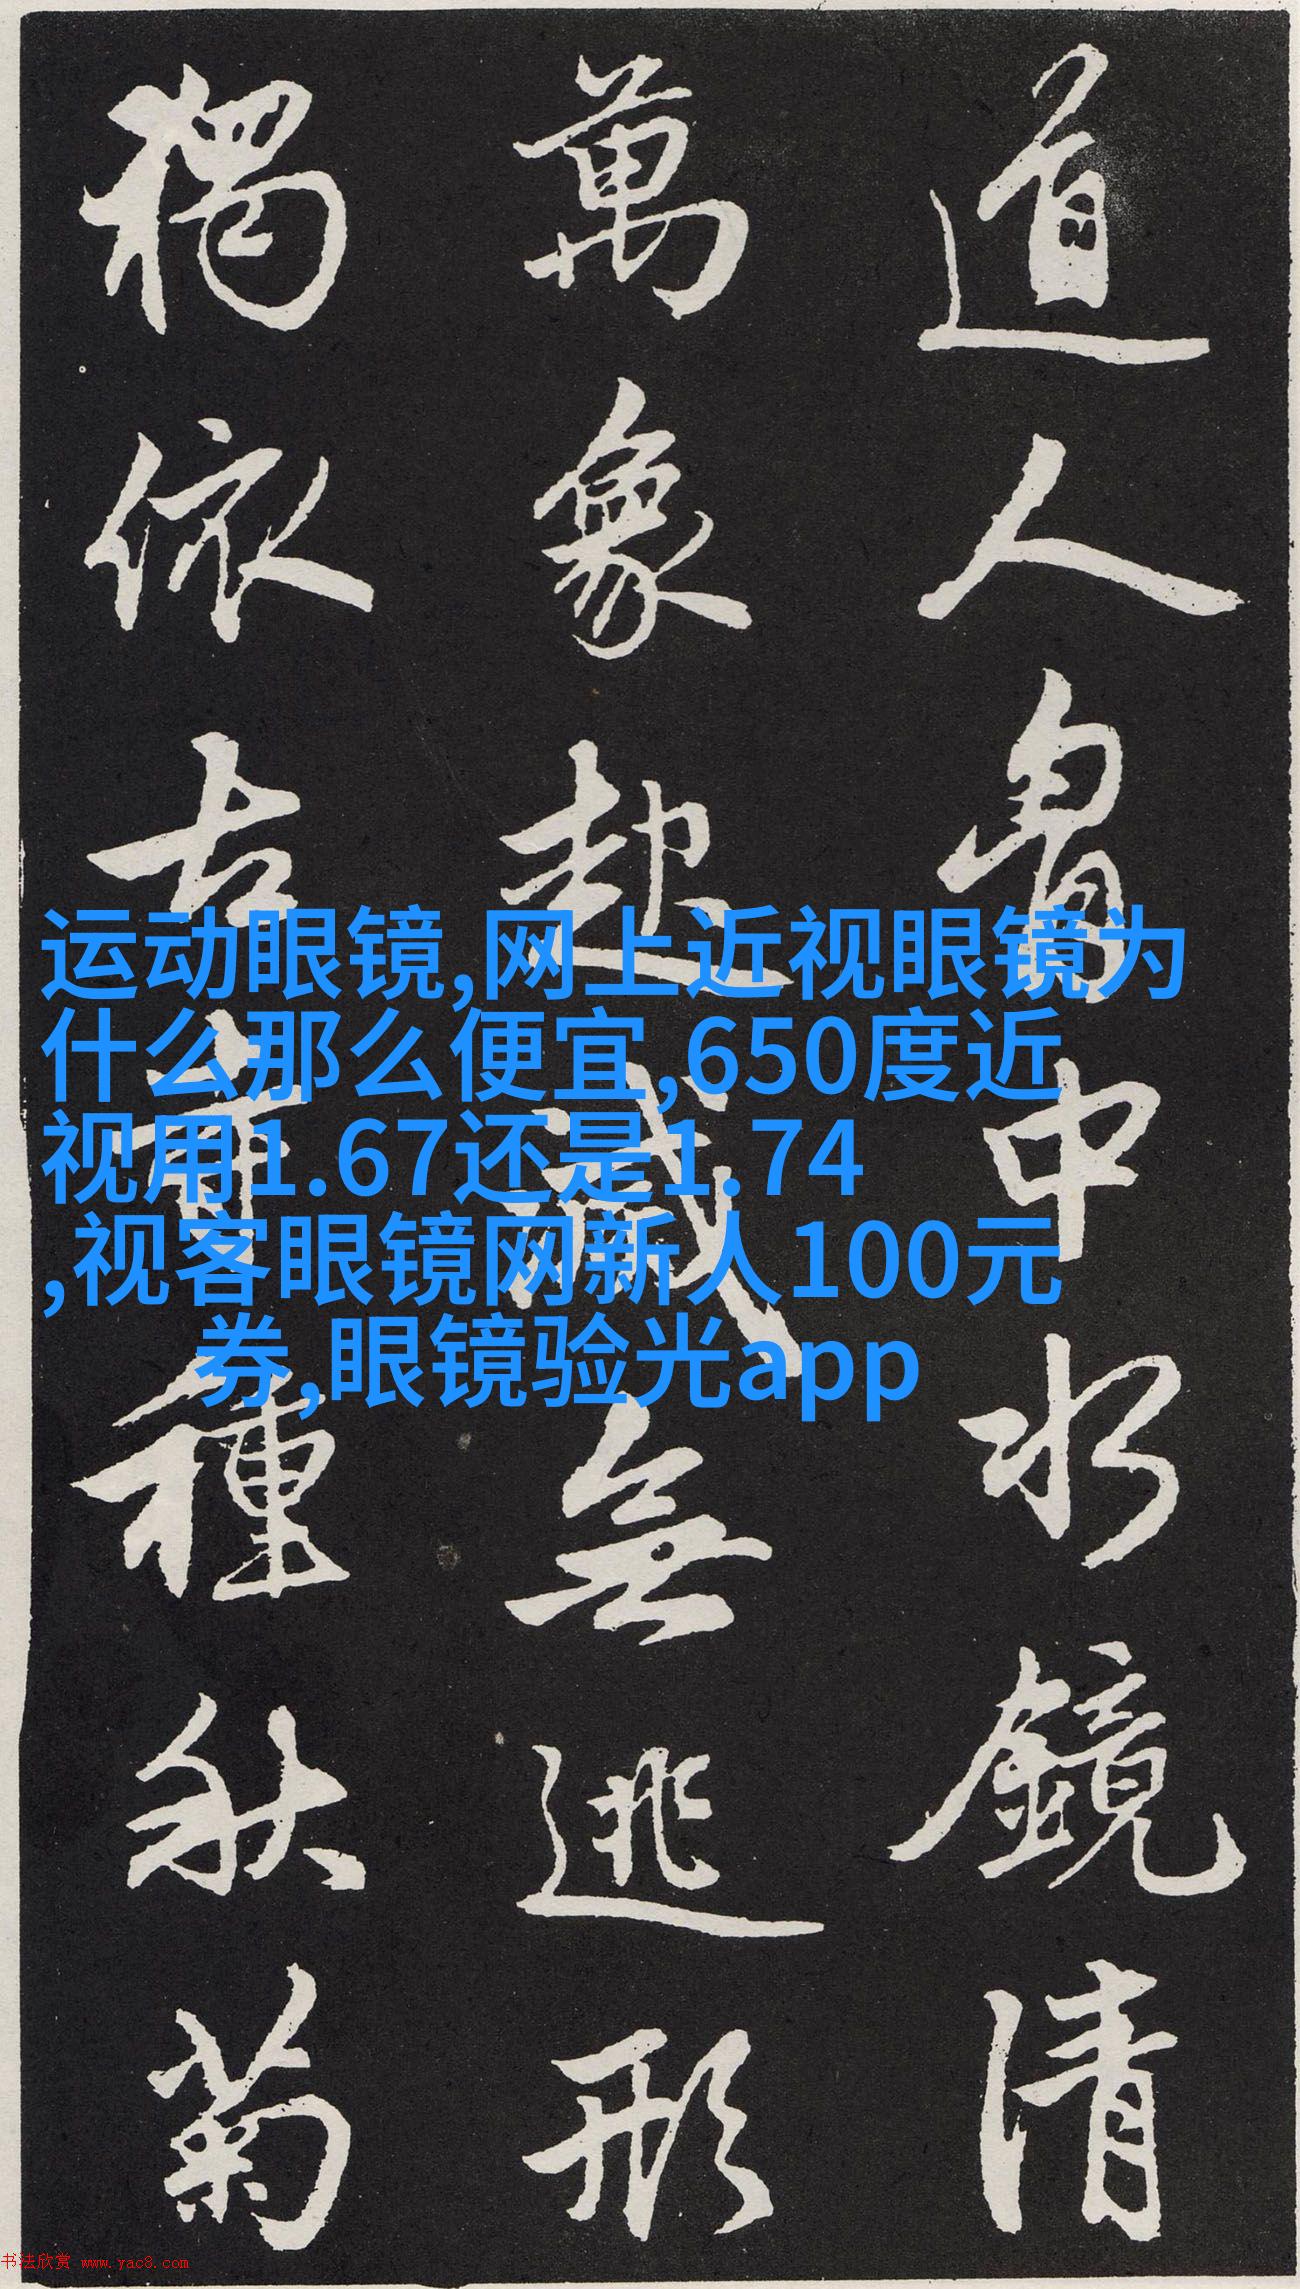 道人胷中水鏡清
萬象起滅無逃形
獨依古寺種秋菊
运动眼镜,网上近视眼镜为
什么那么便宜,650度近
视用1.67还是1.74
,视客眼镜网新人100元
券,眼镜验光app
书法欣赏 www.yac8.com